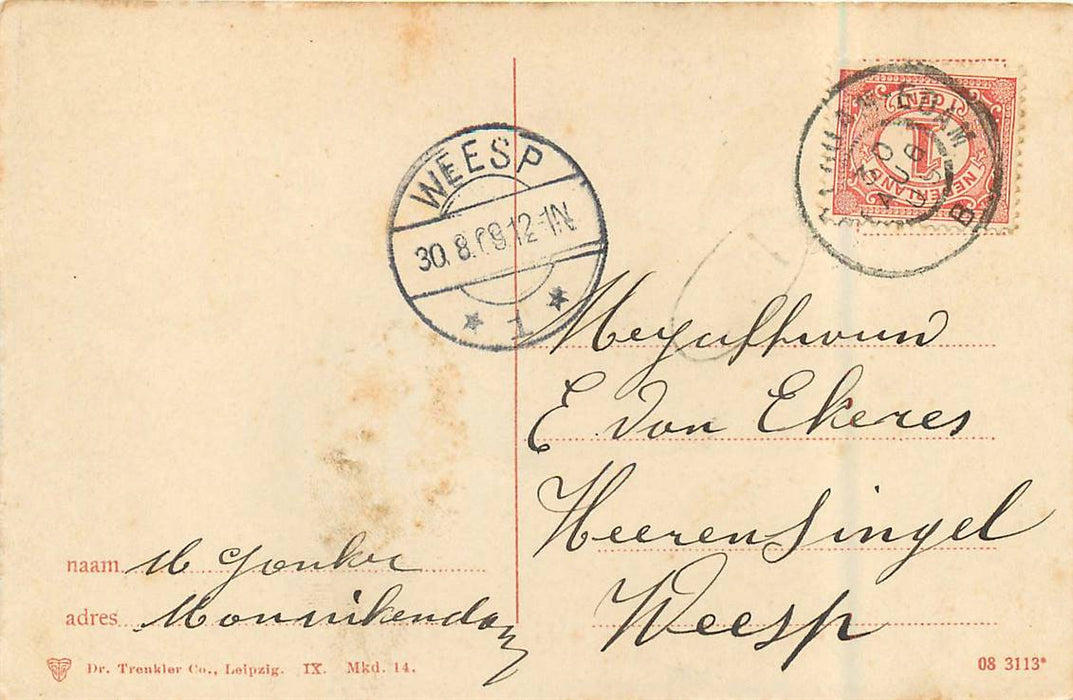 WEESP
30.8.09 12-1N
1
1 CENT
1
NEDERLAND
30 AUG
B
Mejuffrouw
E Van Ekeres
Heerensingel
Weesp
naam M Jonker
adres Monnikendam
Dr. Trenkler Co., Leipzig. IX. Mkd. 14.
08 3113*